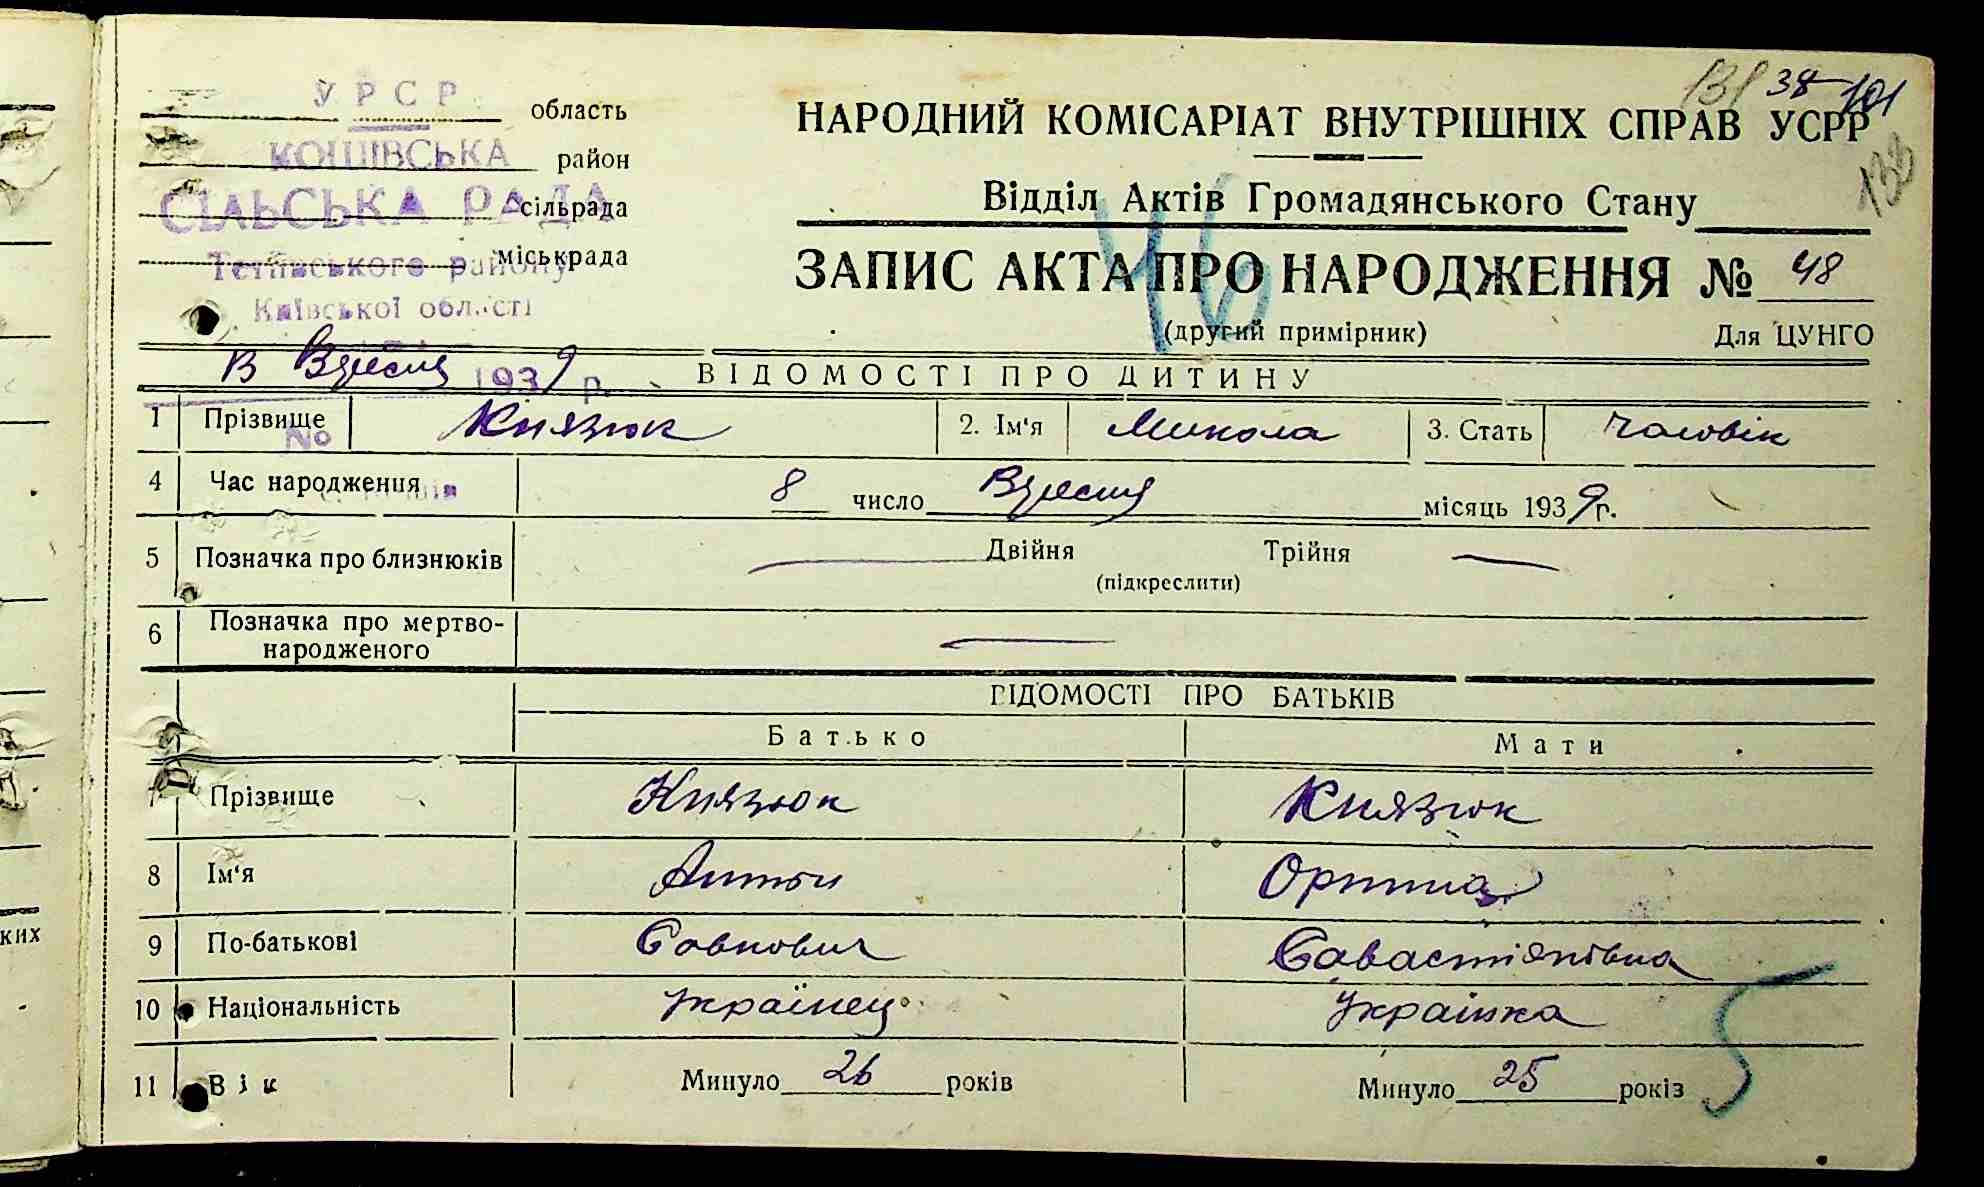 УРСР область
КОШІВСЬКА район
СІЛЬСЬКА РАДА сільрада
Тетіївського району міськрада
Київської області
8 Вересня 1939 р.
№
131 38 101
138
НАРОДНИЙ КОМІСАРІАТ ВНУТРІШНІХ СПРАВ УСРР
Відділ Актів Громадянського Стану
ЗАПИС АКТА ПРО НАРОДЖЕННЯ № 48
46
(другий примірник) Для ЦУНГО
ВІДОМОСТІ ПРО ДИТИНУ
1 Прізвище Князюк 2. Ім'я Микола 3. Стать Чоловік
4 Час народження 8 число Вересня місяць 1939 г.
5 Позначка про близнюків Двійня Трійня
(підкреслити)
6 Позначка про мертво-
народженого
ВІДОМОСТІ ПРО БАТЬКІВ
Батько Мати
7 Прізвище Князюк Князюк
8 Ім'я Антон Орина
9 По-батькові Савкович Савастіянівна
10 Національність Українец Украінка
11 Вік Минуло 26 років Минуло 25 років
5
ких